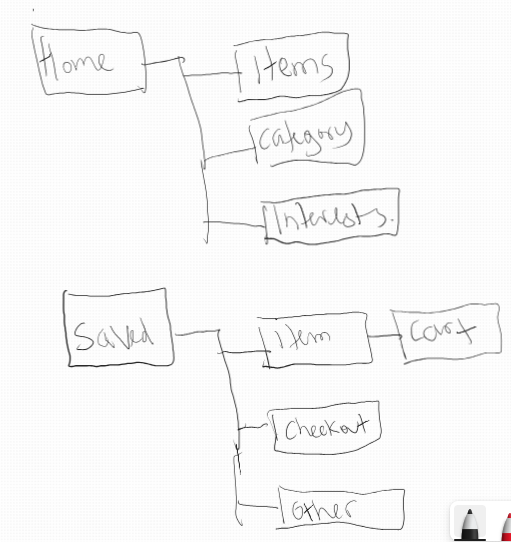 Home
Items
Category
Interests.
Saved
Item
Cart
Checkout
Other